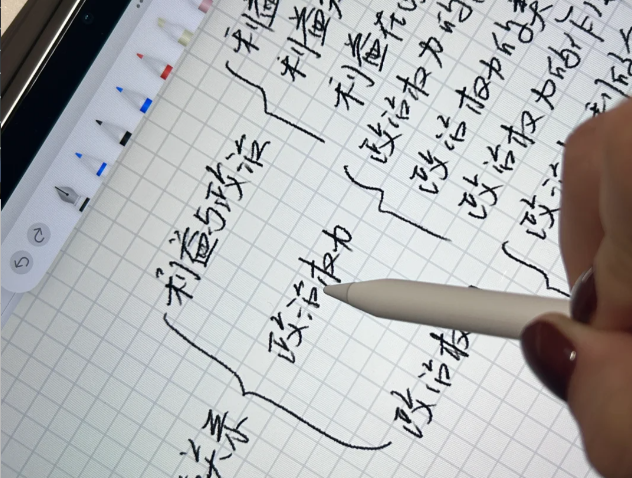 利益
利益
利益在
政治权力的
政治权力的
政治权力的作用
利益与政治
政治权力
政治权
关系